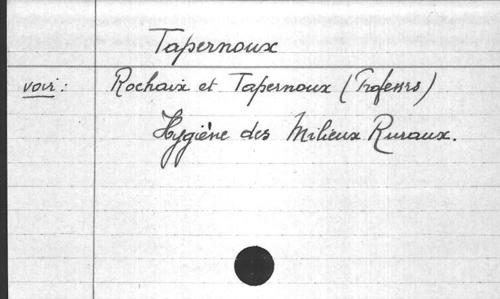 Tapernoux
voir : Rochaix et Tapernoux (Profesrs)
Hygiène des Milieux Ruraux.